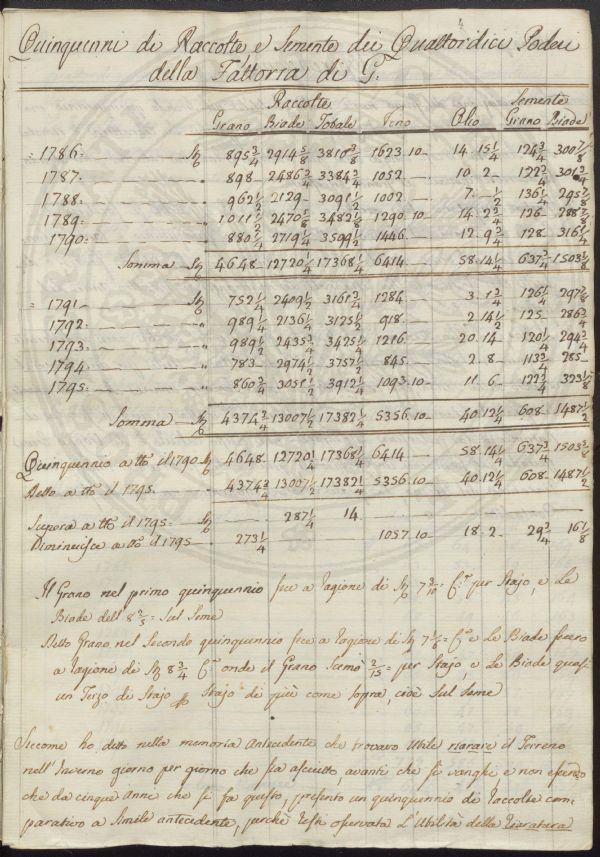 4
Quinquenni di Raccolte e Semente dei Quattordici Poderi
della Fattoria di G.
Raccolte Semente
Grano Biade Totale Vino Olio Grano Biade
1786 895 3/4 2914 5/8 3810 3/8 1623.10 14.15 1/4 124 3/4 300 7/8
1787 898 2486 3/4 3384 3/4 1052 10.2 122 3/4 301 3/4
1788 962 1/2 2129 3091 1/2 1002 7. 1/2 136 1/4 295 7/8
1789 1011 1/2 2470 5/8 3482 1/8 1290.10 14.2 3/4 126 288 7/8
1790 880 1/4 2719 1/4 3599 1/2 1446 12.9 3/4 128 316 1/4
Somma 4648 12720 1/4 17368 1/4 6414 58.14 1/4 637 3/4 1503 5/8
1791 752 1/4 2409 1/2 3161 3/4 1284 3.1 3/4 126 1/4 297 7/8
1792 989 1/4 2136 1/4 3125 1/2 918 2.14 1/2 125 286 3/4
1793 989 1/2 2435 3/4 3425 1/4 1216 20.14 120 1/4 294 3/4
1794 783 2974 1/2 3757 1/2 845 2.8 113 3/4 285
1795 860 3/4 3051 1/2 3912 1/4 1093.10 11.6 122 3/4 323 1/8
Somma 4374 3/4 13007 1/2 17382 1/4 5356.10 40.12 1/4 608 1487 1/2
Quinquennio a tto il 1790 4648 12720 1/4 17368 1/4 6414 58.14 1/4 637 3/4 1503 5/8
Detto a tto il 1795 4374 3/4 13007 1/2 17382 1/4 5356.10 40.12 1/4 608 1487 1/2
Supera a tto il 1795 287 1/4 14
Diminuisce a tto il 1795 273 1/4 1057.10 18.2 29 3/4 16 1/8
Il Grano nel primo quinquennio fece a ragione di 7 3/10 per Stajo, e le
Biade dell' 8 2/5 sul Seme
Detto Grano nel Secondo quinquennio fece a ragione di 7 1/6 e le Biade fecero
a ragione di 8 3/4 onde il Grano Scemò 2/15 per Stajo e le Biade quasi
un Terzo di Stajo Stajo di più come sopra, cioè sul Seme
Siccome ho detto nella memoria Antecedente che trovavo Utile rarare il Terreno
nell'Inverno giorno per giorno che sia asciutto avanti che si vanghi e non essendo
che da cinque Anni che si fa questo, presento un quinquennio di raccolte com-
parativo a Simile antecedente, perchè resti osservata L'Utilità della